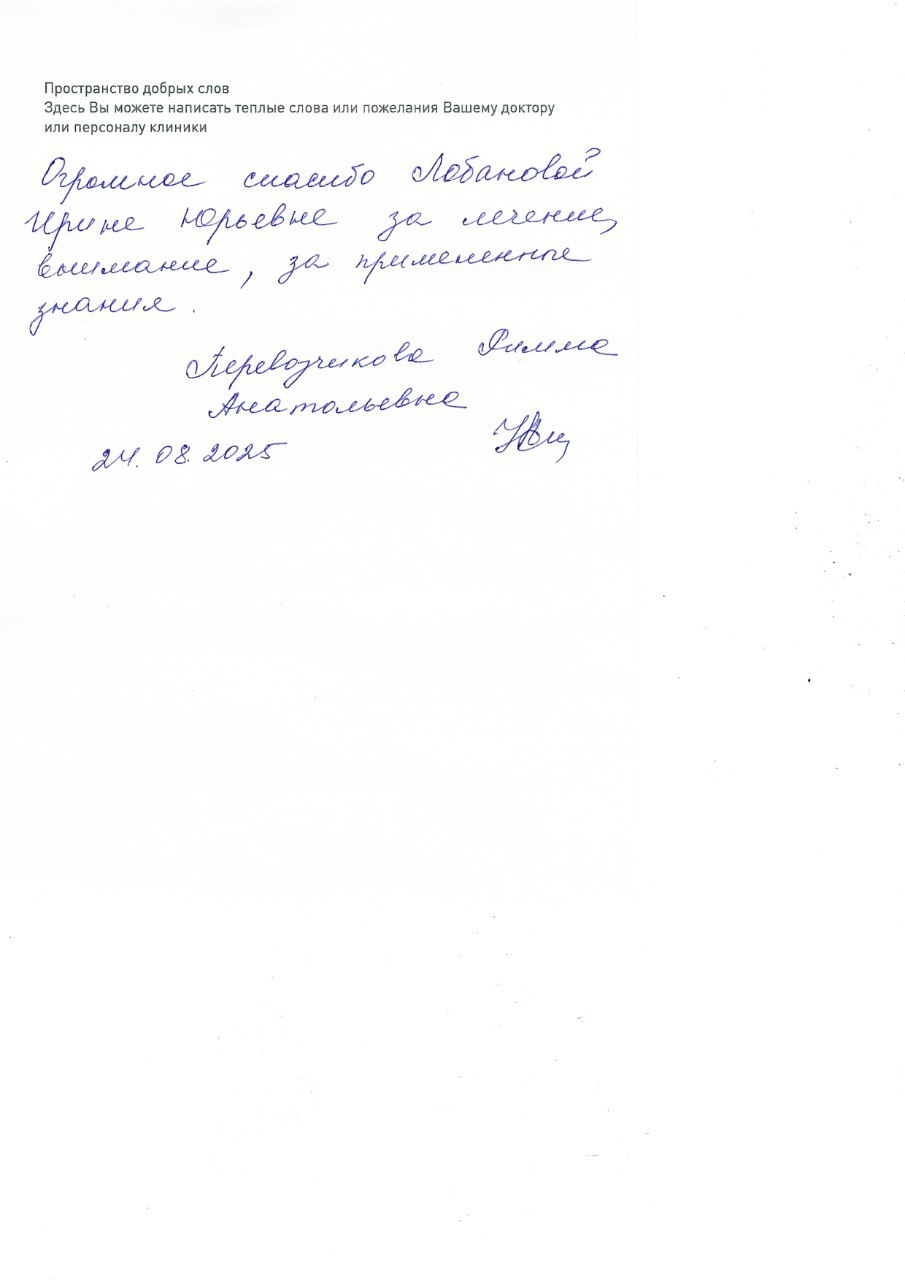 Пространство добрых слов
Здесь Вы можете написать теплые слова или пожелания Вашему доктору
или персоналу клиники
Огромное спасибо Лобановой
Ирине Юрьевне за лечение,
внимание, за примененные
знания.
Перевозчикова Римма
Анатольевна
24.08.2025